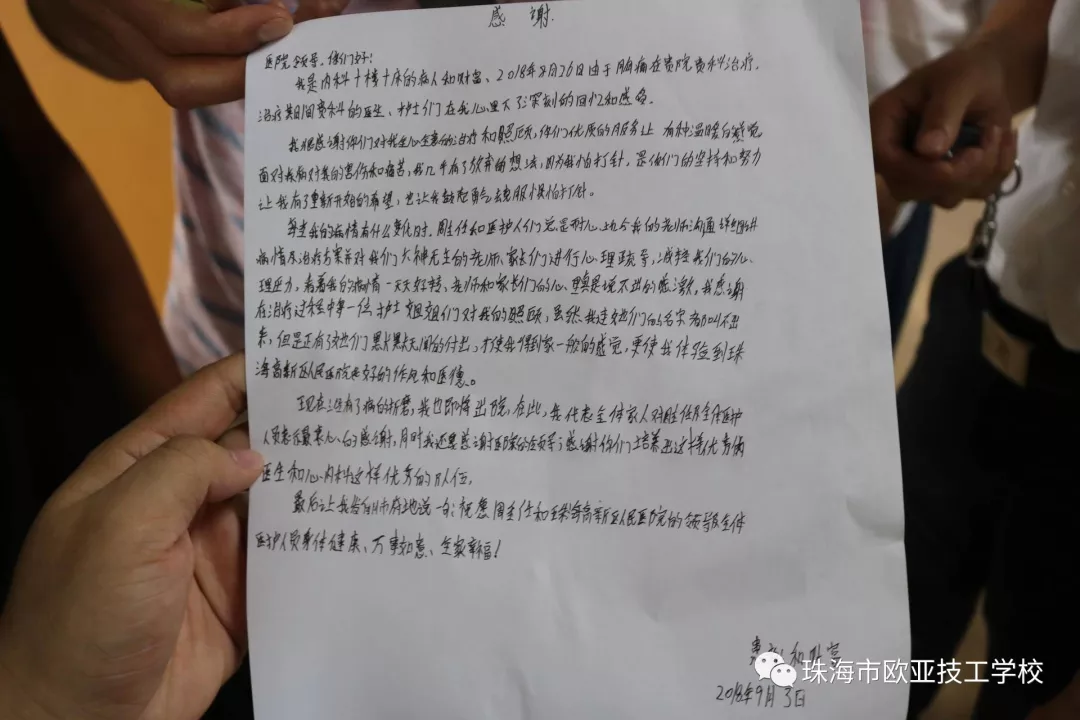 感 谢
医院领导，你们好！
我是内科十楼十床的病人和财富、2018年8月26日由于胸痛在贵院贵科治疗。
治疗期间贵科的医生、护士们在我心里留下了深刻的回忆和感名。
我很感谢你们对我无心全意的治疗和照顾，你们优质的服务让 有种温暖的感觉
面对疾病对我的害伤和痛苦，我几乎有了放弃的想法，因为我怕打针，是你们的坚持和努力
让我有了重新开始的希望，也让我鼓起勇气去克服惧怕打针。
每当我的病情有什么变化时，周主任和医护人们总是耐心地和我的老师沟通 详细讲
病情及治疗方案并对我们六神无主的老师、家长们进行心理疏导，减轻我们的心
理压力，看着我的病情一天天好转、老师和家长们的心里真是说不出的感激，我感谢
在治疗过程中每一位护士姐姐们对我的照顾，虽然我连她们的名字都叫不出
来，但是正有了她们默默无闻的付出，才使我得到家一般的感觉，更使我体验到珠
海高新区人民医院良好的作风和医德。
现在没有了病的折磨，我也即将出院，在此，我代表全体家人对周主任及全体医护
人员表示最衷心的感谢，同时我还要感谢医院的领导，感谢你们培养出这样优秀的
医生和心内科这样优秀的队伍。
最后让我 说一句：祝愿周主任和珠海高新区人民医院的领导及全体
医护人员身体健康、万事如意、全家幸福！
患者：和财富
2018年9月3日
珠海市欧亚技工学校